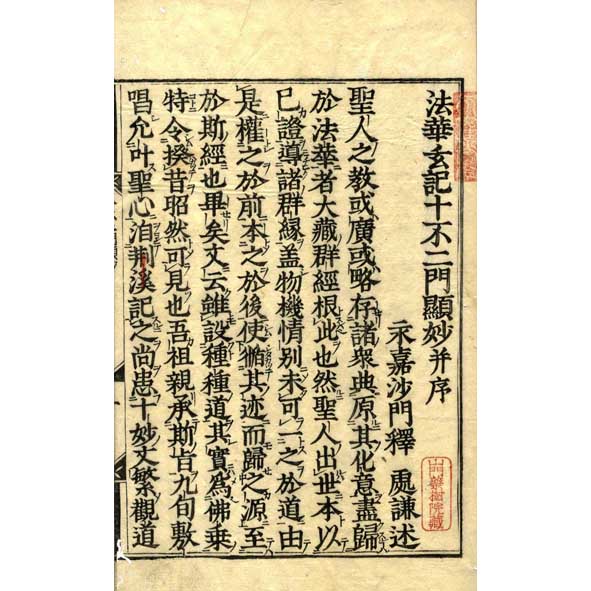 法華玄記十不二門顯妙并序
永嘉沙門釋 處謙述
聖人之教或廣或略存諸衆典原其化意盡歸
於法華者大藏群經根此也然聖人出世本以
已證導諸群縁盖物機情别未可一之於道由
是權之於前本之於後使循其迹而歸之源至
於斯經也畢矣文云雖設種種道其實爲佛乗
特令揆昔昭然可見也吾祖親承斯旨九旬敷
唱允叶聖心洎荆溪記之尚患十妙文繁觀道